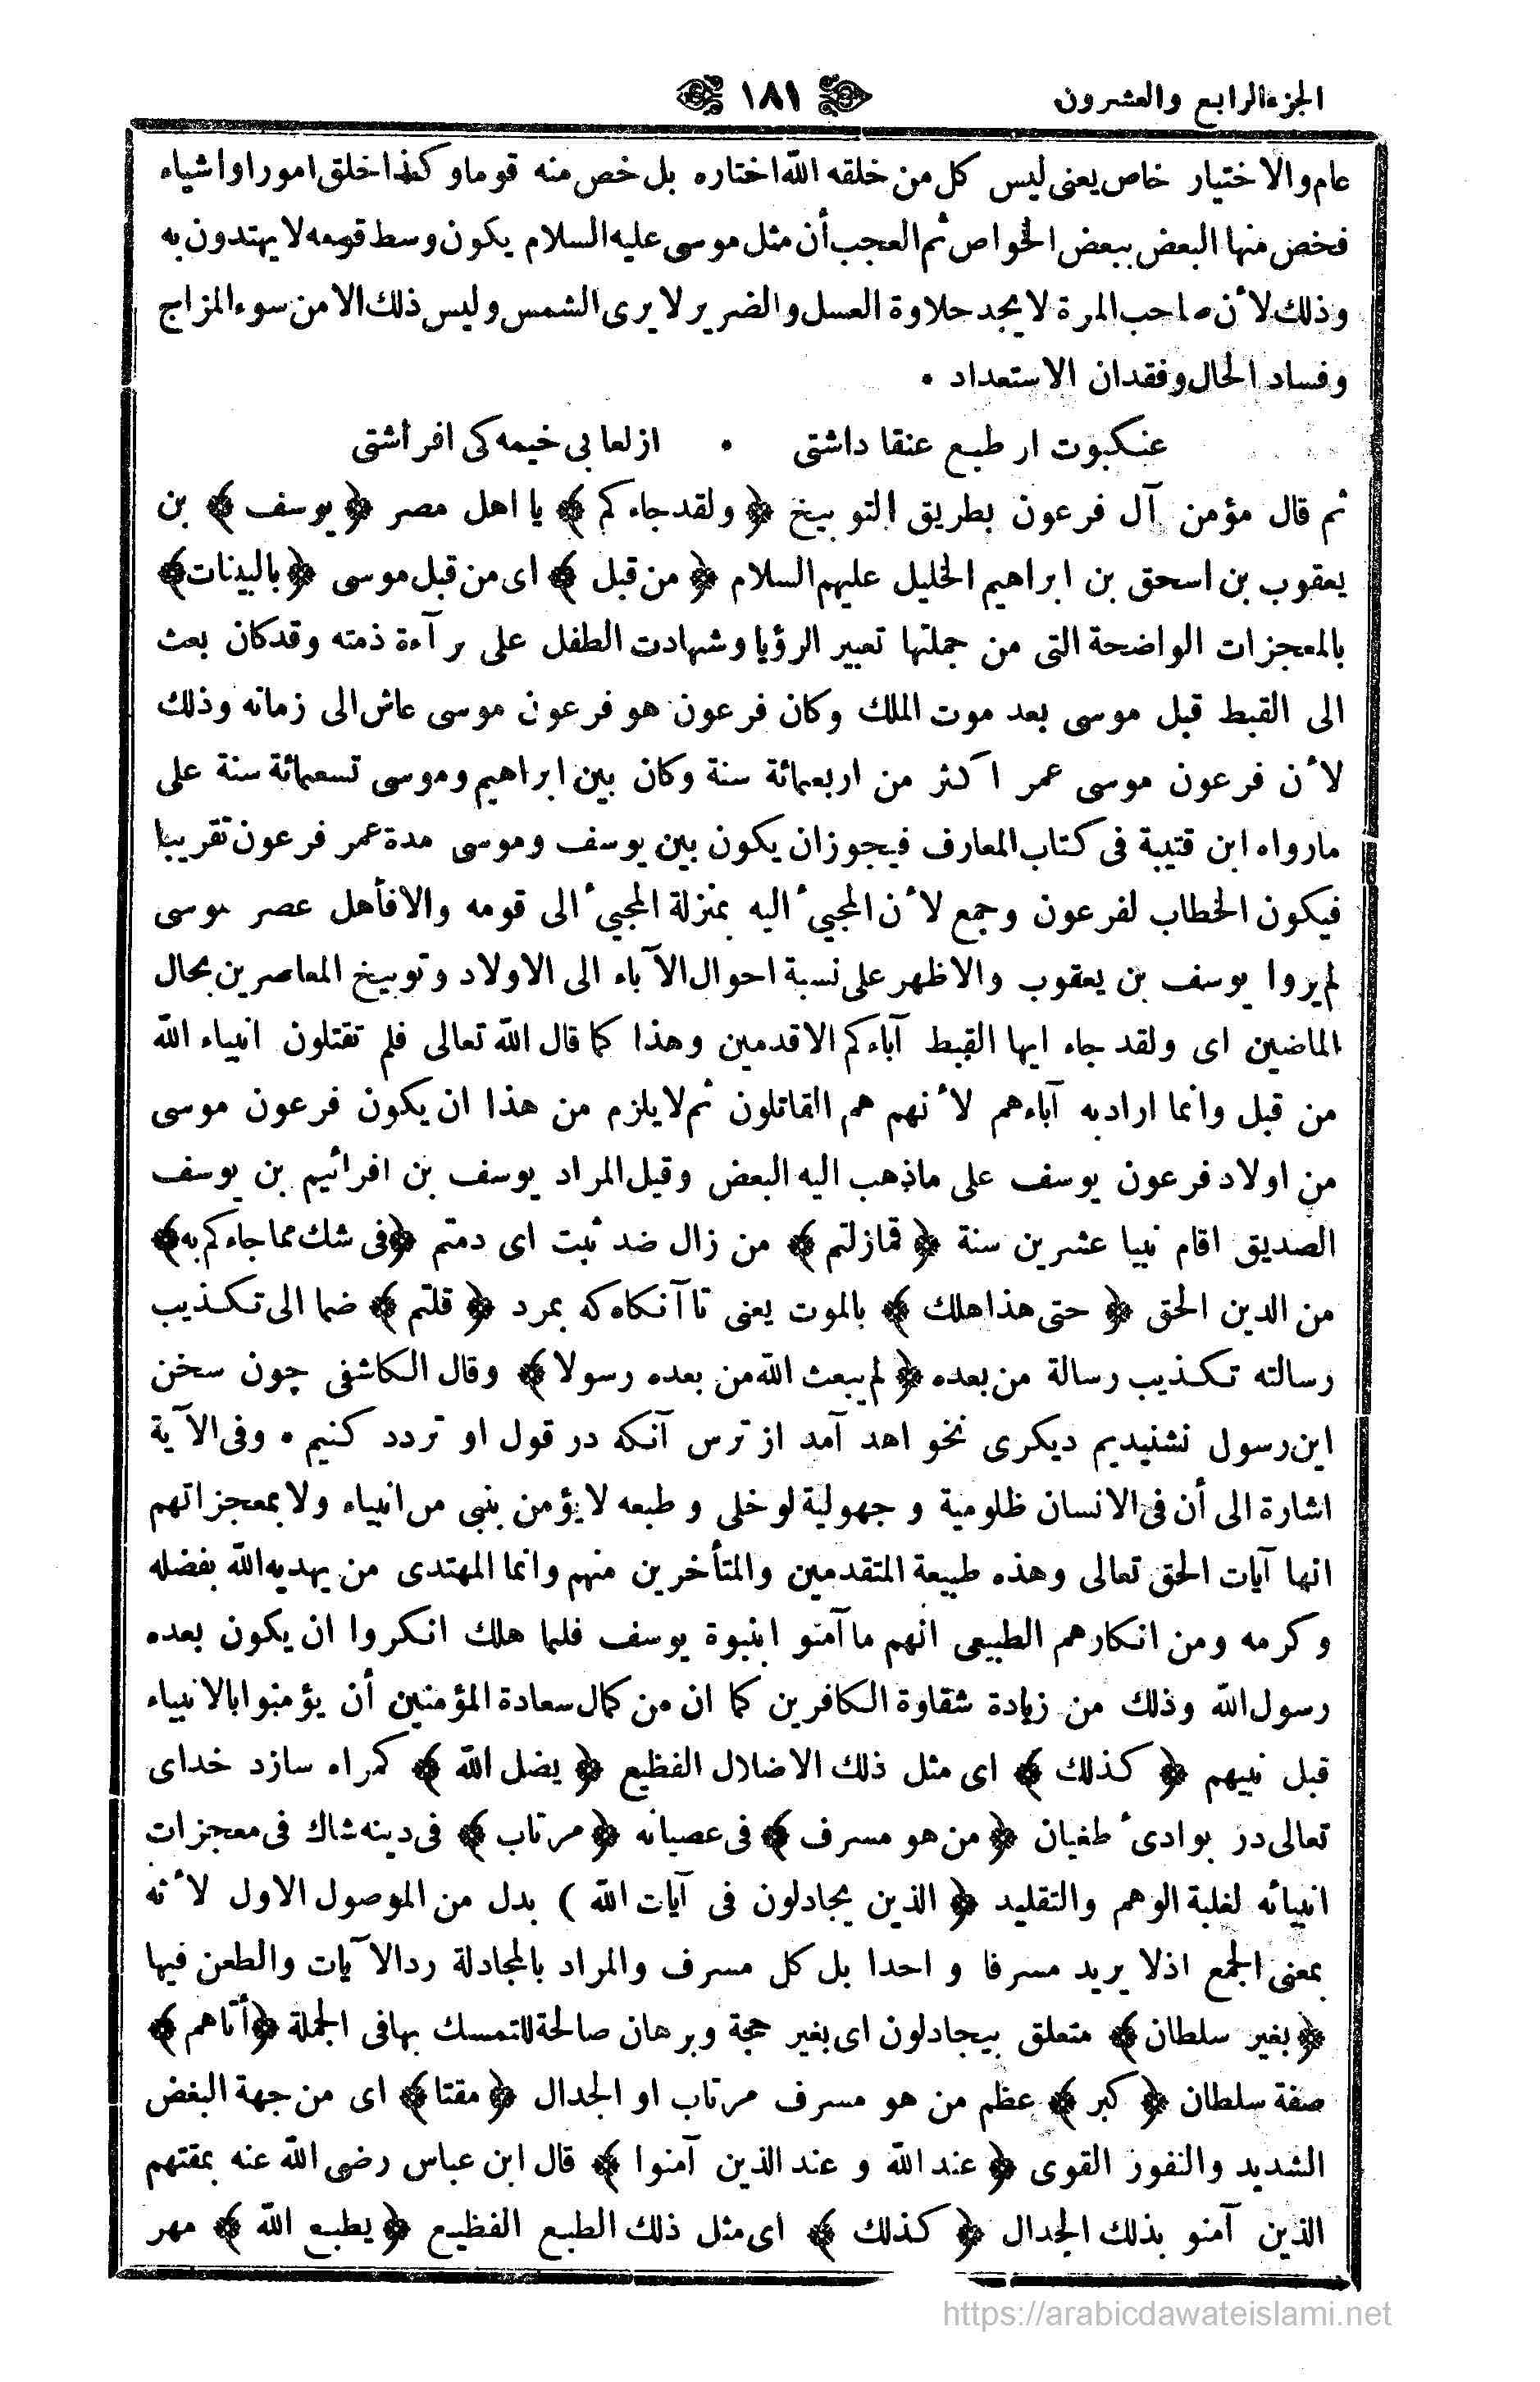 الجزء الرابع والعشرون
١٨١
عام والاختيار خاص يعنى ليس كل من خلقه الله اختاره بل خص منه قوما وكذا خلق امورا واشياء
فخص منها البعض ببعض الخواص ثم العجب أن مثل موسى عليه السلام يكون وسط قومه لا يهتدون به
وذلك لأن صاحب المرة لا يجد حلاوة العسل والضرير لا يرى الشمس وليس ذلك الا من سوء المزاج
وفساد الحال وفقدان الاستعداد •
عنكبوت ار طبع عنقا داشتى • از لعابى خيمه كى افراشتى
ثم قال مؤمن آل فرعون بطريق التوبيخ ﴿ ولقد جاءكم ﴾ يا اهل مصر ﴿ يوسف ﴾ بن
يعقوب بن اسحق بن ابراهيم الخليل عليهم السلام ﴿ من قبل ﴾ اى من قبل موسى ﴿ بالبينات ﴾
بالمعجزات الواضحة التى من جملتها تعبير الرؤيا وشهادت الطفل على برآءة ذمته وقد كان بعث
الى القبط قبل موسى بعد موت الملك وكان فرعون هو فرعون موسى عاش الى زمانه وذلك
لأن فرعون موسى عمر اكثر من اربعمائة سنة وكان بين ابراهيم وموسى تسعمائة سنة على
مارواه ابن قتيبة فى كتاب المعارف فيجوز ان يكون بين يوسف وموسى مدة عمر فرعون تقريبا
فيكون الخطاب لفرعون وجمع لأن المجيئ اليه بمنزلة المجيئ الى قومه والا فأهل عصر موسى
لم يروا يوسف بن يعقوب والاظهر على نسبة احوال الآباء الى الاولاد وتوبيخ المعاصرين بحال
الماضين اى ولقد جاء ايها القبط آباءكم الاقدمين وهذا كما قال الله تعالى فلم تقتلون انبياء الله
من قبل وانما اراد به آباءهم لأنهم هم القاتلون ثم لا يلزم من هذا ان يكون فرعون موسى
من اولاد فرعون يوسف على ماذهب اليه البعض وقيل المراد يوسف بن افرائيم بن يوسف
الصديق اقام نبيا عشرين سنة ﴿ فمازلتم ﴾ من زال ضد ثبت اى دمتم ﴿ فى شك مما جاءكم به ﴾
من الدين الحق ﴿ حتى هذا هلك ﴾ بالموت يعنى تا آنكاه كه بمرد ﴿ قلتم ﴾ ضما الى تكذيب
رسالته تكذيب رسالة من بعده ﴿ لم يبعث الله من بعده رسولا ﴾ وقال الكاشفى چون سخن
اين رسول نشنيديم ديكرى نخواهد آمد از ترس آنكه در قول او تردد كنيم • وفى الآية
اشارة الى أن فى الانسان ظلومية و جهولية لو خلى و طبعه لا يؤمن بنبى من انبياء ولا بمعجزاتهم
انها آيات الحق تعالى وهذه طبيعة المتقدمين والمتأخرين منهم وانما المهتدى من يهديه الله بفضله
وكرمه ومن انكارهم الطبيعى انهم ما آمنو ابنبوة يوسف فلما هلك انكروا ان يكون بعده
رسول الله وذلك من زيادة شقاوة الكافرين كما ان من كمال سعادة المؤمنين أن يؤمنوا بالانبياء
قبل نبيهم ﴿ كذلك ﴾ اى مثل ذلك الاضلال الفظيع ﴿ يضل الله ﴾ كمراه سازد خداى
تعالى در بوادئ طغيان ﴿ من هو مسرف ﴾ فى عصيانه ﴿ مرتاب ﴾ فى دينه شاك فى معجزات
انبيائه لغلبة الوهم والتقليد ﴿ الذين يجادلون فى آيات الله ) بدل من الموصول الاول لأنه
بمعنى الجمع اذ لا يريد مسرفا و احدا بل كل مسرف والمراد بالمجادلة رد الآيات والطعن فيها
﴿ بغير سلطان ﴾ متعلق بيجادلون اى بغير حجة وبرهان صالحة للتمسك بها فى الجملة ﴿ أتاهم ﴾
صفة سلطان ﴿ كبر ﴾ عظم من هو مسرف مرتاب او الجدال ﴿ مقتا ﴾ اى من جهة البغض
الشديد والنفور القوى ﴿ عند الله و عند الذين آمنوا ﴾ قال ابن عباس رضى الله عنه بمقتهم
الذين آمنو بذلك الجدال ﴿ كذلك ﴾ اى مثل ذلك الطبع الفظيع ﴿ يطبع الله ﴾ مهر
https://arabicdawateislami.net